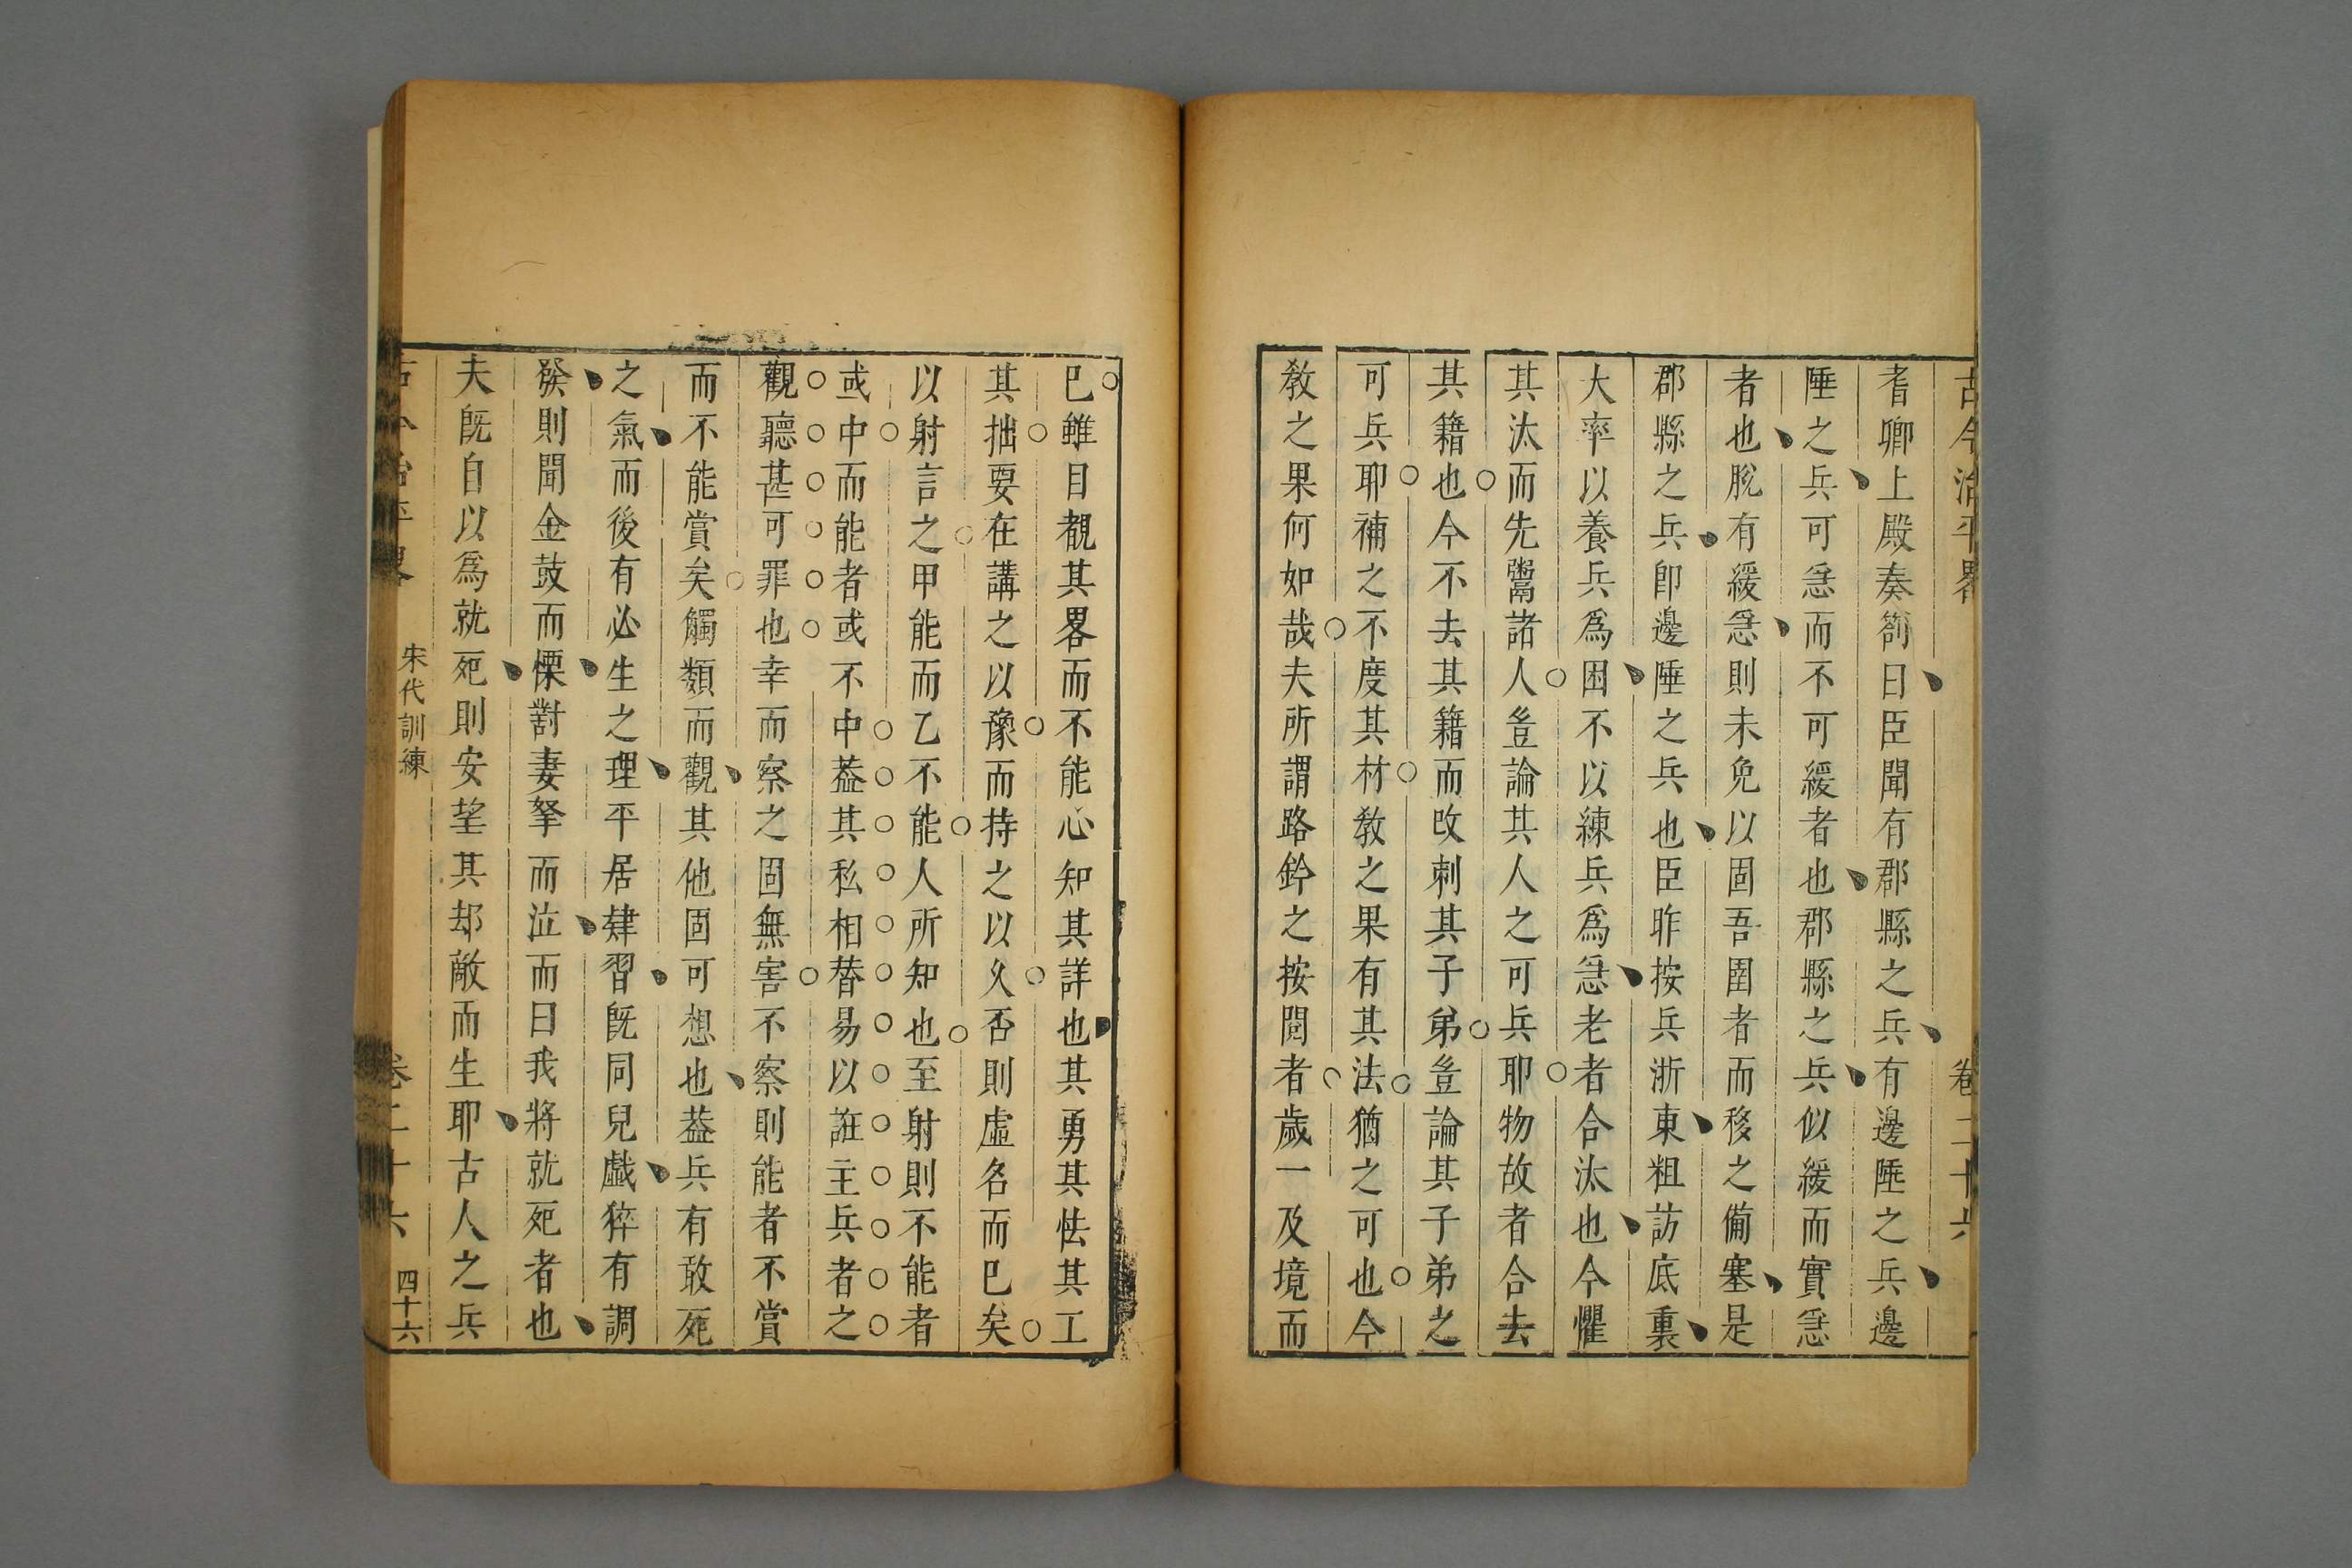 古今治平畧
卷二十六
耆卿上殿奏劄曰臣聞有郡縣之兵有邊陲之兵邊
陲之兵可急而不可緩者也郡縣之兵似緩而實急
者也脫有緩急則未免以固吾圉者而移之僃塞是
郡縣之兵卽邊陲之兵也臣昨按兵浙東粗訪底裏
大率以養兵爲困不以練兵爲急老者合汰也今懼
其汰而先鬻諸人豈論其人之可兵耶物故者合去
其籍也今不去其籍而改刺其子弟豈論其子弟之
可兵耶補之不度其材敎之果有其法猶之可也今
敎之果何如哉夫所謂路鈐之按閱者歲一及境而
巳雖目覩其畧而不能心知其詳也其勇其怯其工
其拙要在講之以豫而持之以久否則虛名而巳矣
以射言之甲能而乙不能人所知也至射則不能者
或中而能者或不中葢其私相替易以誑主兵者之
觀聽甚可罪也幸而察之固無害不察則能者不賞
而不能賞矣觸類而觀其他固可想也葢兵有敢死
之氣而後有必生之理平居肄習旣同兒戱猝有調
發則聞金鼓而慄對妻孥而泣而曰我將就死者也
夫旣自以爲就死則安望其却敵而生耶古人之兵
古今治平畧
宋代訓練
卷二十六
四十六